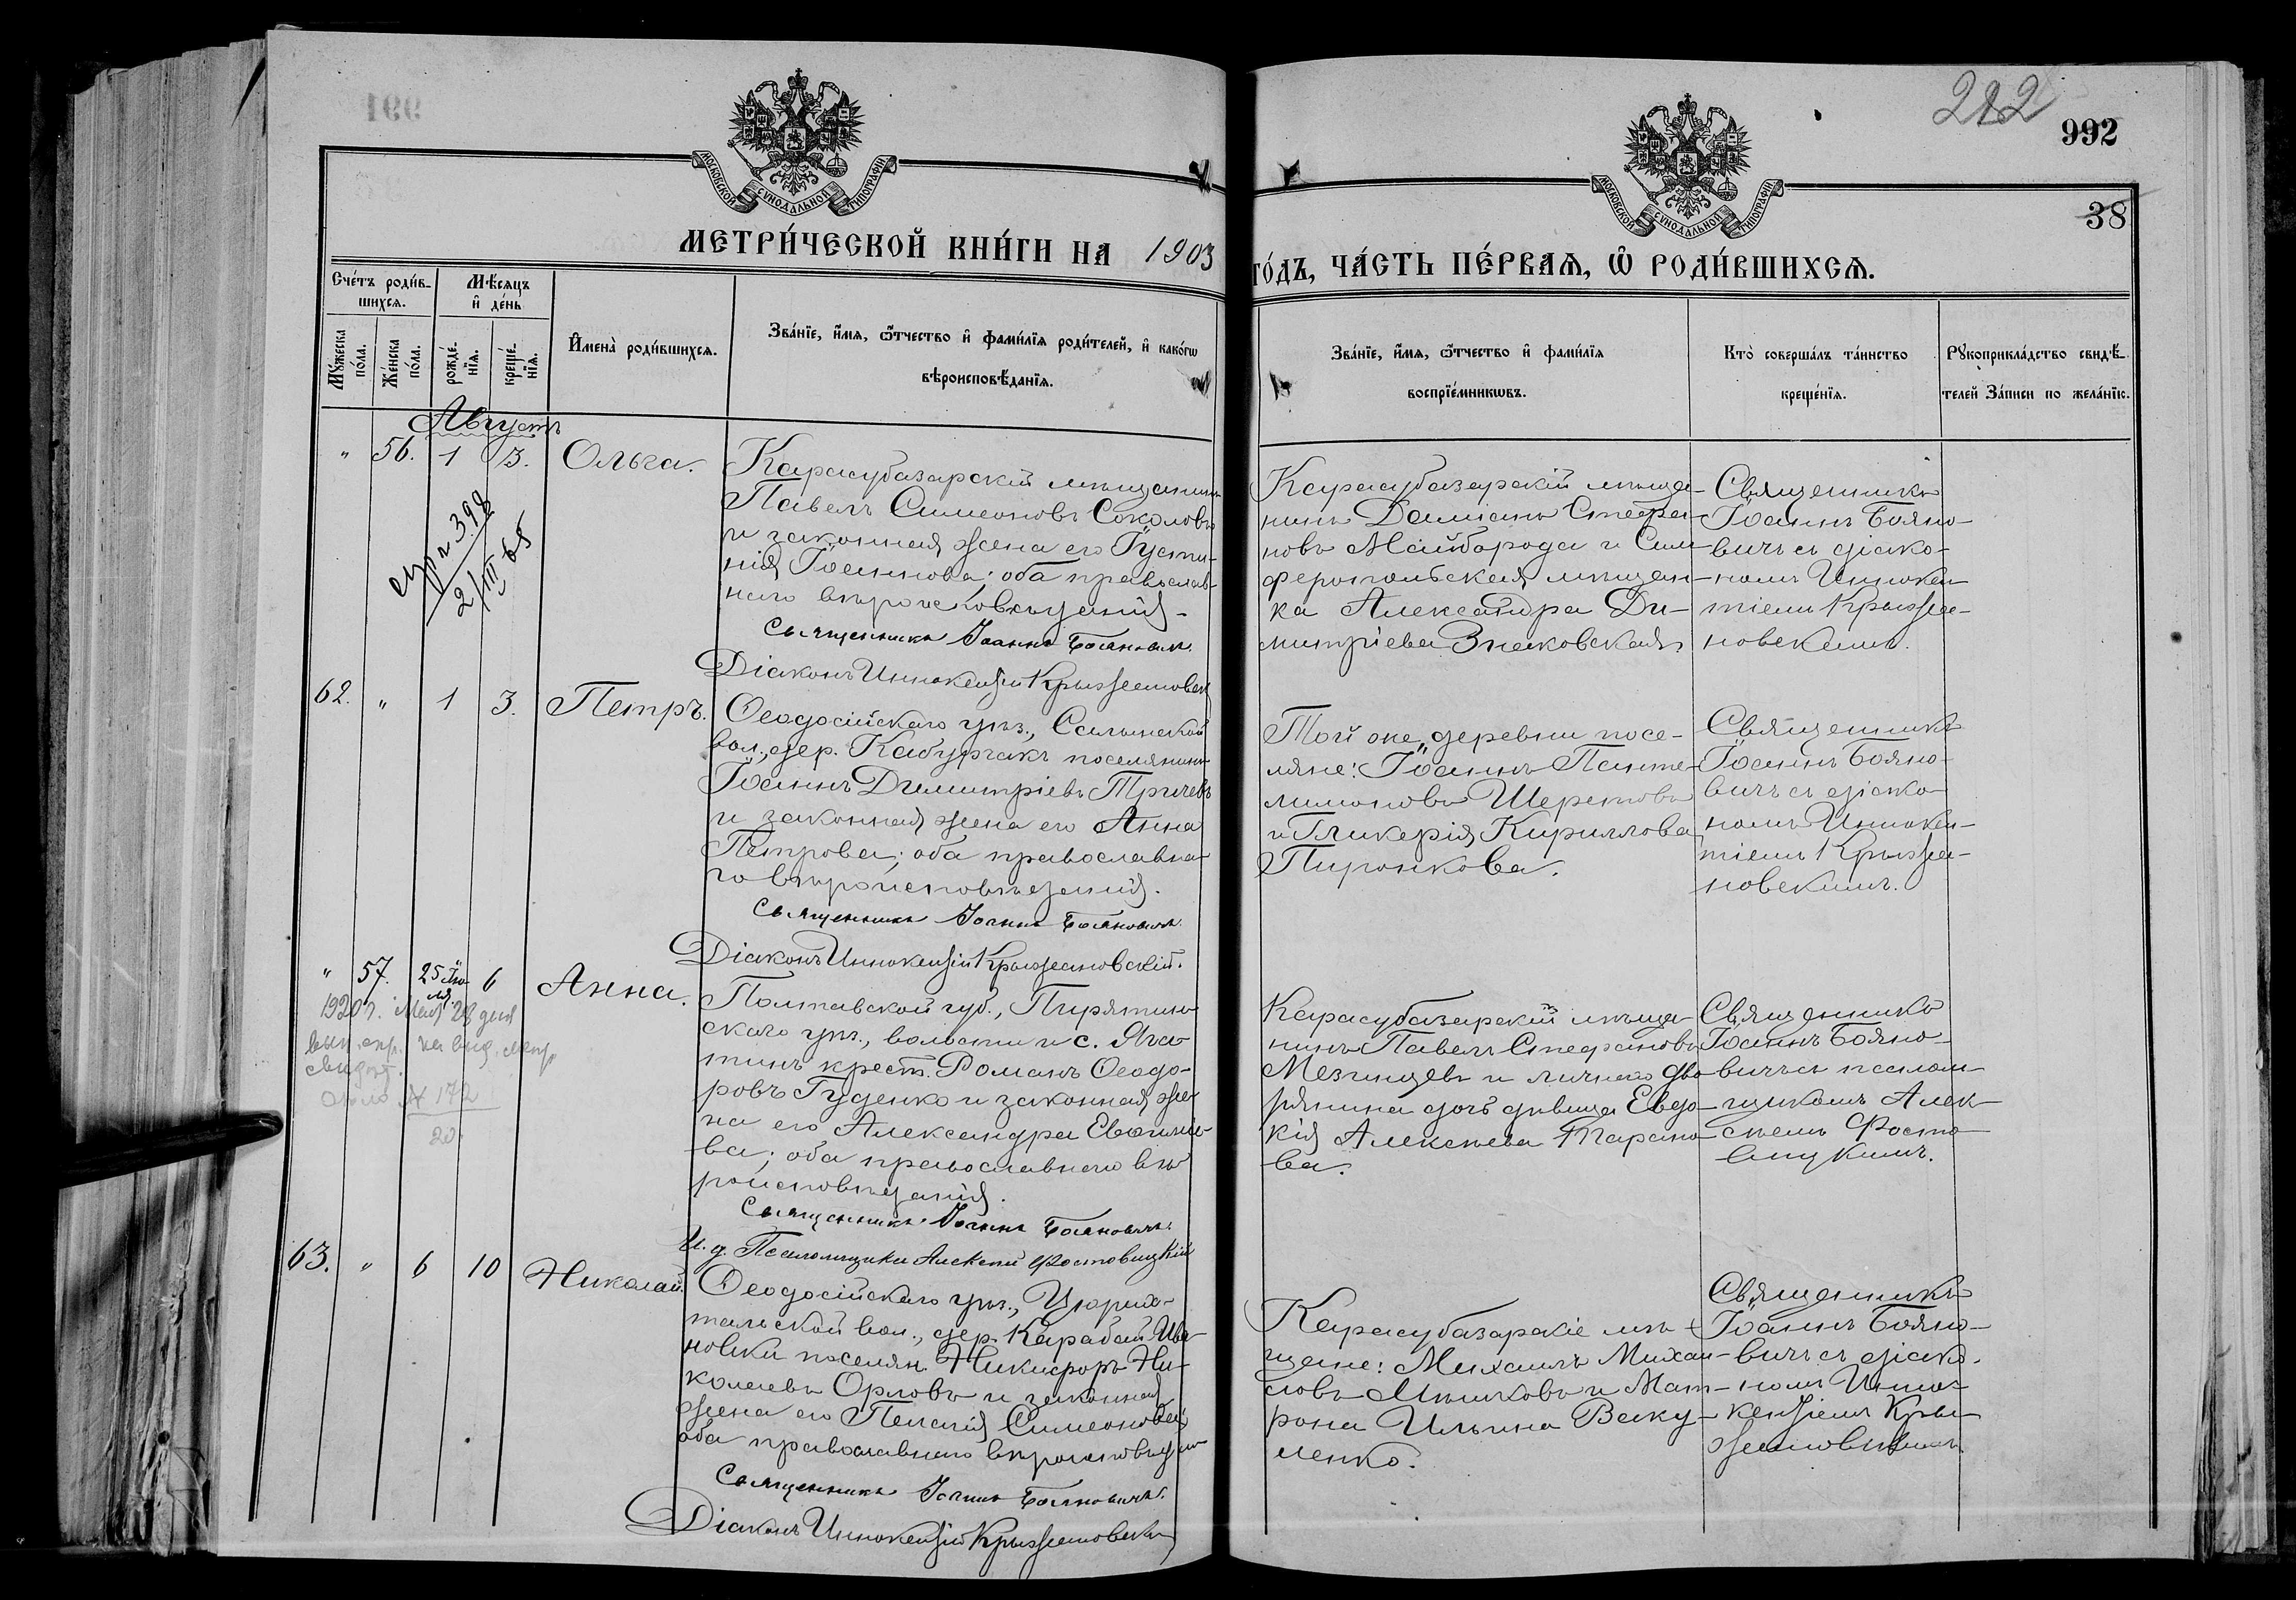 212
992
38
МОСКОВСКОЙ СѴНОДАЛЬНОЙ ТИПОГРАФІИ
МОСКОВСКОЙ СѴНОДАЛЬНОЙ ТИПОГРАФІИ
МЕТРИ́ЧЕСКОЙ КНИ́ГИ НА 1903
ГО́ДЪ, ЧА́СТЬ ПЕ́РВАѦ, Ѡ҆ РОДИ́ВШИХСѦ.
Сче́тъ роди́в-
шихсѧ.
Мѣ́сѧцъ
и҆ де́нь
Мꙋ́жеска
по́ла.
Же́нска
по́ла.
рожде́-
нїѧ.
креще́-
нїѧ.
И҆мена̀ роди́вшихсѧ.
Зва́нїе, и҆́мѧ, ѻ҆́тчество и҆ фами́лїѧ роди́телей, и҆ како́гѡ
вѣроисповѣ́данїѧ.
Зва́нїе, и҆́мѧ, ѻ҆́тчество и҆ фами́лїѧ
воспрїе́мникѡвъ.
Кто̀ соверша́лъ та́инство
креще́нїѧ.
Рꙋкоприкла́дство свидѣ́-
телей за́писи по жела́нїю.
Августъ
" 56. 1 3. Ольга.
Карасубазарскій мѣщанинъ
Павелъ Симеоновъ Соколовъ
и законная жена его Іусти-
нія Іоаннова; оба православ-
наго вѣроисповѣданія.
Священникъ Іоаннъ Бояновичъ.
Діаконъ Иннокентій Крыжановск
Карасубазарскій мѣща-
нинъ Даміанъ Стефа-
новъ Майборода и Сим-
феропольская мѣщан-
ка Александра Ди-
митріева Знаковская.
Священникъ
Іоаннъ Бояно-
вичъ съ діако-
номъ Иннокен
тіемъ Крыжа-
новскимъ.
2/III 65
62. " 1 3. Петръ.
Ѳеодосійскаго уѣз., Салынской
вол., дер. Кабурчакъ поселянинъ
Іоаннъ Димитріевъ Тричевъ
и законная жена его Анна
Петрова; оба православна-
го вѣроисповѣданія.
Священникъ Іоаннъ Бояновичъ.
Діаконъ Иннокентій Крыжановскій.
Той же деревни посе-
ляне: Іоаннъ Панте-
лимоновъ Шереметовъ
и Гликерія Кириллова
Пиронкова.
Священникъ
Іоаннъ Бояно-
вичъ съ діако
номъ Иннокен-
тіемъ Крыжа-
новскимъ.
" 57. 25 Ію-
ля. 6 Анна.
1920 г. Мая 28 дня
№ 172
20
Полтавской губ., Пирятин-
скаго уѣз., волости и с. Яго-
тинъ крест. Романъ Ѳеодо-
ровъ Гуденко и законная же-
на его Александра Евѳиміе-
ва; оба православнаго вѣ
роисповѣданія.
Священникъ Іоаннъ Бояновичъ.
И. д. Псаломщика Алексѣй Ростовицкій
Карасубазарскій мѣща-
нинъ Павелъ Стефановъ
Мезинцевъ и личнаго дво-
рянина дочь дѣвица Евдо-
кія Алексѣева Тарано-
ва.
Священникъ
Іоаннъ Бояно-
вичъ съ псалом-
щикомъ Алек-
сѣемъ Росто-
вицкимъ.
63. " 6 10 Николай.
Ѳеодосійскаго уѣз., Цюрих-
тальской вол., дер. Карабай Ива-
новки поселян. Никифоръ Ни-
колаевъ Орловъ и законная
жена его Пелагія Симеонова;
оба православнаго вѣроисповѣдан
Священникъ Іоаннъ Бояновичъ.
Діаконъ Иннокентій Крыжановскі
Карасубазарскіе мѣ-
щане: Михаилъ Михай-
ловъ Мѣшковъ и Мат-
рона Ильина Ваку-
ленко.
Священникъ
Іоаннъ Бояно-
вичъ съ діако-
номъ Инно-
кентіемъ Кры-
жановскимъ.